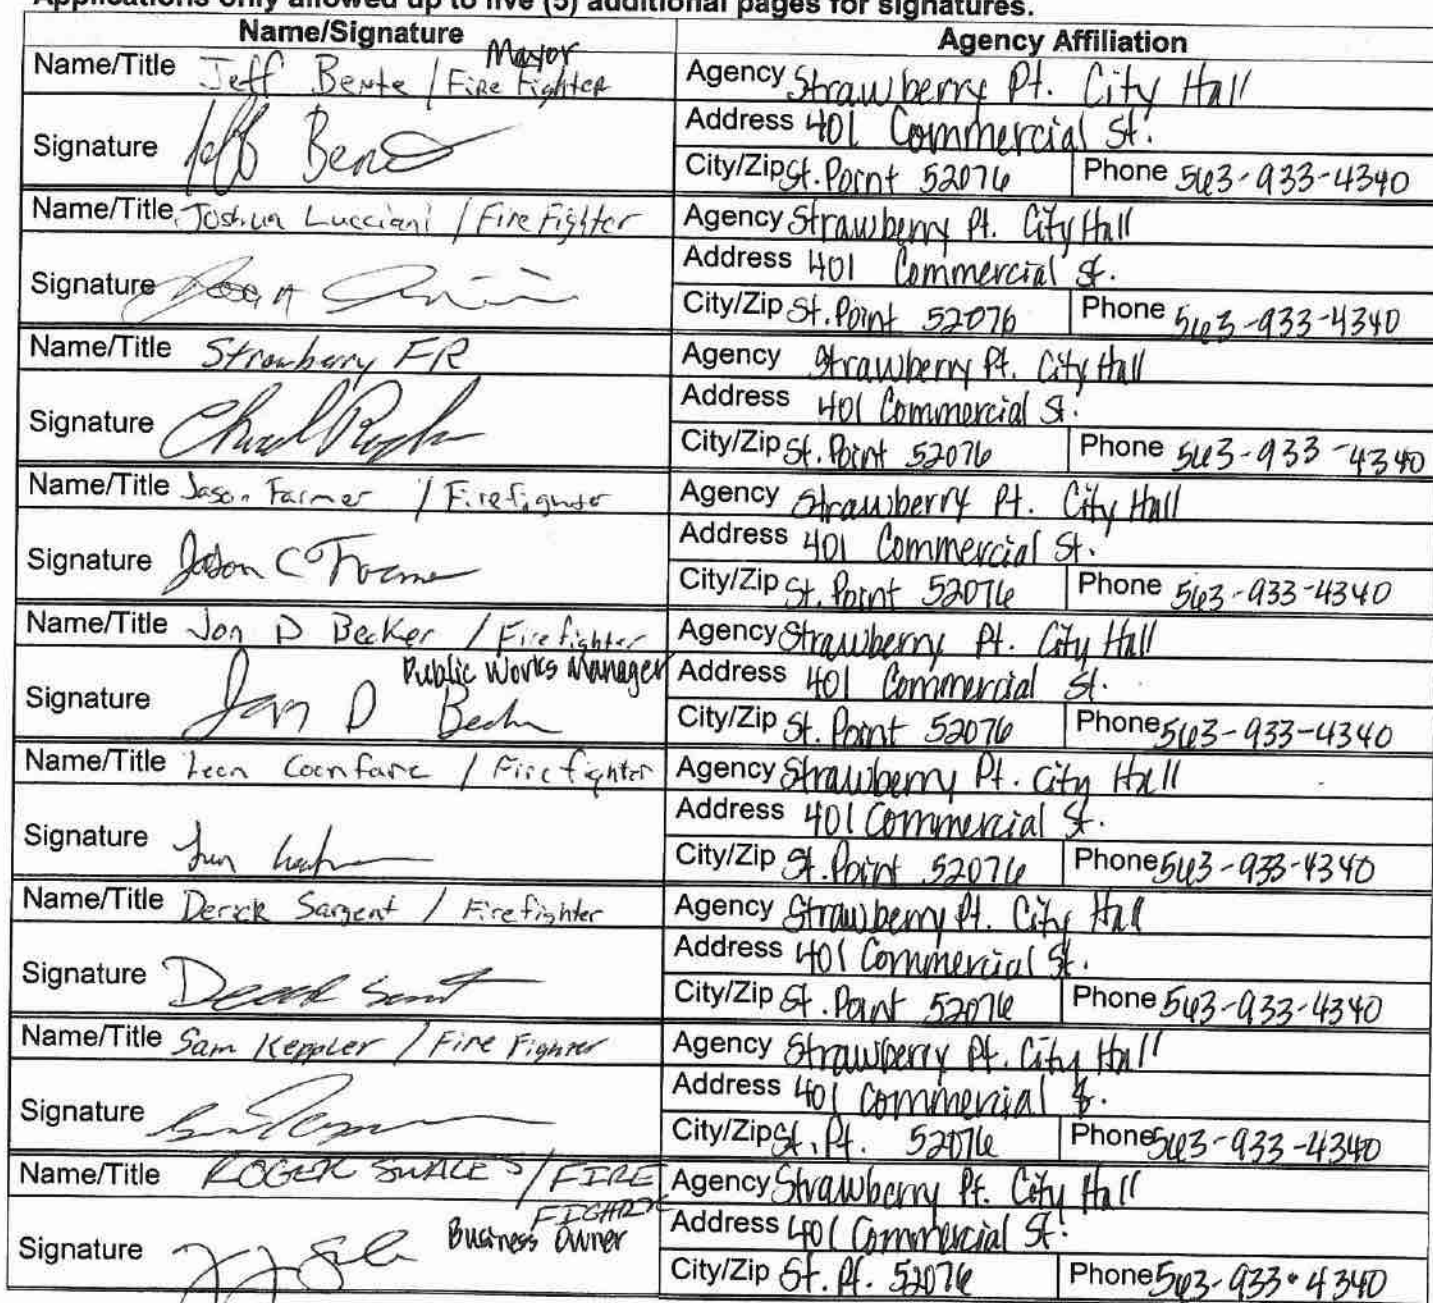 Applications only allowed up to five (5) additional pages for signatures.
Name/Signature Agency Affiliation
Mayor
Name/Title Jeff Bente / Fire Fighter Agency Strawberry Pt. City Hall
Signature Jeff Bente Address 401 Commercial St.
City/Zip St. Point 52076 Phone 563-933-4340
Name/Title Joshua Lucciani / Fire Fighter Agency Strawberry Pt. City Hall
Signature Address 401 Commercial St.
City/Zip St. Point 52076 Phone 563-933-4340
Name/Title Strawberry FR Agency Strawberry Pt. City Hall
Signature Address 401 Commercial St.
City/Zip St. Point 52076 Phone 563-933-4340
Name/Title Jason Farmer / Firefighter Agency Strawberry Pt. City Hall
Signature Jason C Farmer Address 401 Commercial St.
City/Zip St. Point 52076 Phone 563-933-4340
Name/Title Jon D Becker / Firefighter Agency Strawberry Pt. City Hall
Public Works Manager
Signature Jon D Becker Address 401 Commercial St.
City/Zip St. Point 52076 Phone 563-933-4340
Name/Title / Firefighter Agency Strawberry Pt. City Hall
Signature Address 401 Commercial St.
City/Zip St. Point 52076 Phone 563-933-4340
Name/Title Derick Sargent / Firefighter Agency Strawberry Pt. City Hall
Signature Address 401 Commercial St.
City/Zip St. Point 52076 Phone 563-933-4340
Name/Title Sam Keppler / Fire Fighter Agency Strawberry Pt. City Hall
Signature Address 401 Commercial St.
City/Zip St. Pt. 52076 Phone 563-933-4340
Name/Title ROGER SWALES / FIRE Agency Strawberry Pt. City Hall
FIGHTER
Business Owner
Signature Address 401 Commercial St.
City/Zip St. Pt. 52076 Phone 563-933-4340